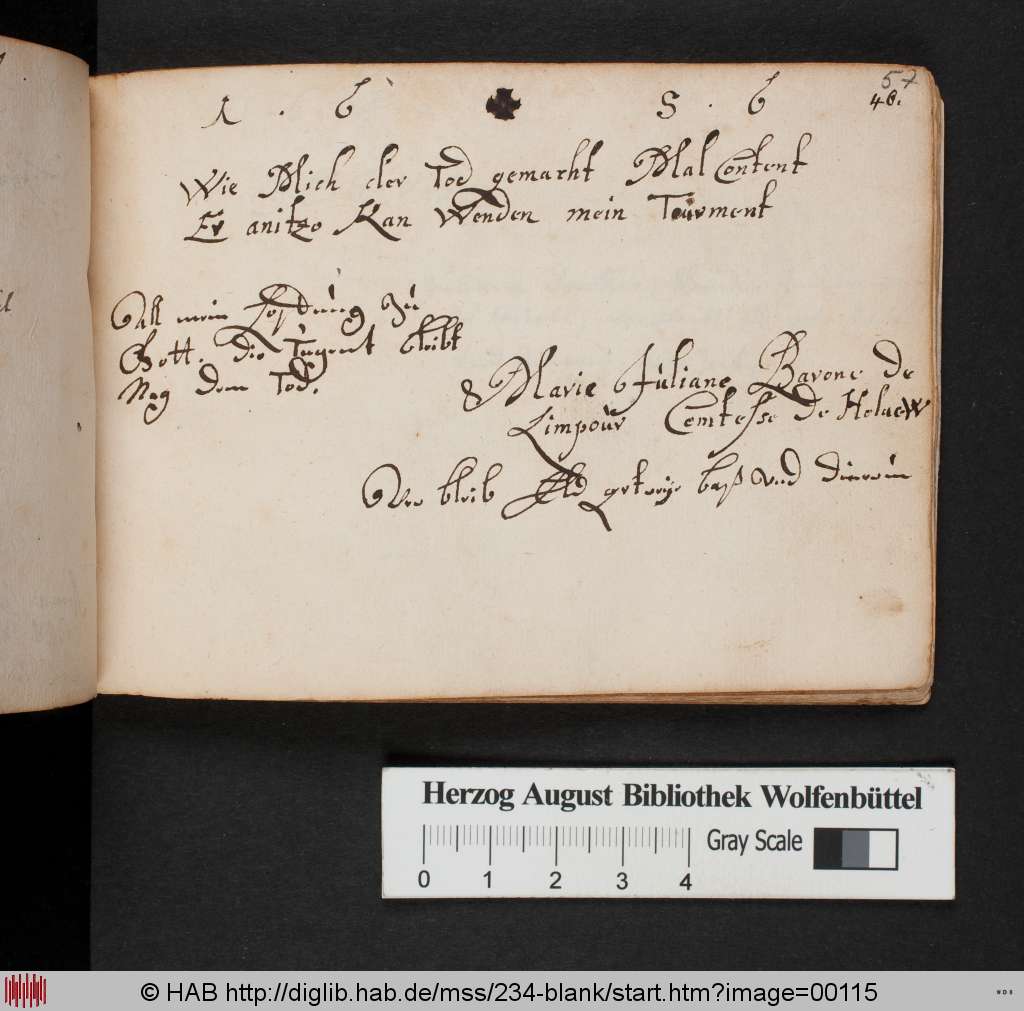 57
1 . 6 S . 6 48.
Wie Mich der Tod gemacht Mal Content
Er anitzo Kan Wenden mein Tourment
All mein Hofdung Zu
Gott. die Tugent bleibt
Nag dem Tod.
Marie Juliane Barone de
Limpour Comtesse de
bleib und dinerin
Herzog August Bibliothek Wolfenbüttel
Gray Scale
0 1 2 3 4
© HAB http://diglib.hab.de/mss/234-blank/start.htm?image=00115